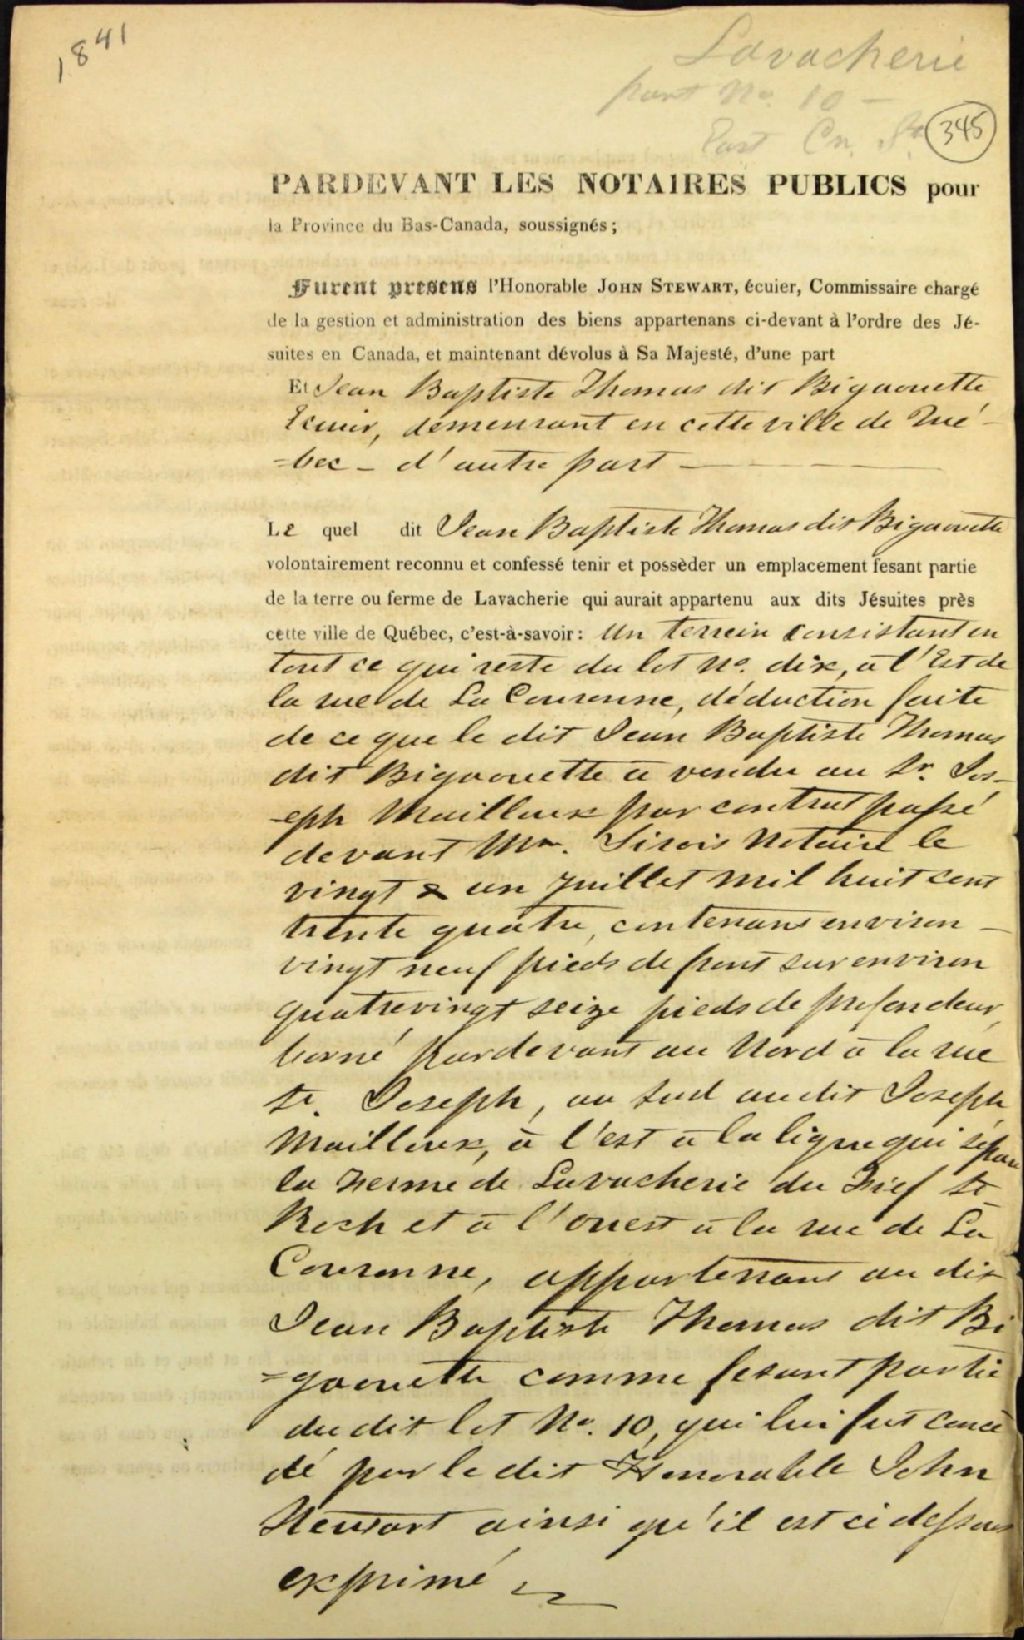 1841
Lavacherie
part No. 10 -
East Cn. St.
345
PARDEVANT LES NOTAIRES PUBLICS pour
la Province du Bas-Canada, soussignés;
Furent presens l'Honorable JOHN STEWART, écuier, Commissaire chargé
de la gestion et administration des biens appartenans ci-devant à l'ordre des Jé-
suites en Canada, et maintenant dévolus à Sa Majesté, d'une part
Et Jean Baptiste Thomas dit Bigaouette
Ecuier, demeurant en cette ville de Qué-
-bec - d'autre part
LE quel dit Jean Baptiste Thomas dit Bigaouette
volontairement reconnu et confessé tenir et possèder un emplacement fesant partie
de la terre ou ferme de Lavacherie qui aurait appartenu aux dits Jésuites près
cette ville de Québec, c'est-à-savoir: Un terrein consistant en
tout ce qui reste du lot No. dix, à l'Est de
la rue de La Couronne, déduction faite
de ce que le dit Jean Baptiste Thomas
dit Bigaouette a vendu au Sr. Jos-
-eph Mailloux par contrat passé
devant Mre. Sirois Notaire le
vingt & un Juillet mil huit cent
trente quatre, contenant environ -
vingt neuf pieds de front sur environ
quatrevingt seize pieds de profondeur,
borné pardevant au Nord à la rue
St. Joseph, au Sud audit Joseph
Mailloux, à l'est à la ligne qui sépare
la Ferme de Lavacherie du Fief St
Roch et à l'ouest à la rue de La
Couronne, appartenant au dit
Jean Baptiste Thomas dit Bi
=gaouette comme fesant partie
du dit lot No. 10, qui lui fut concé
dé par le dit Honorable John
Stewart ainsi qu'il est ci dessous
exprimé